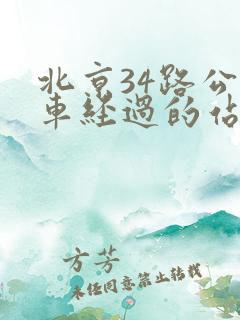 北京34路公
車經過的佔
方芳
未经同意禁止转载